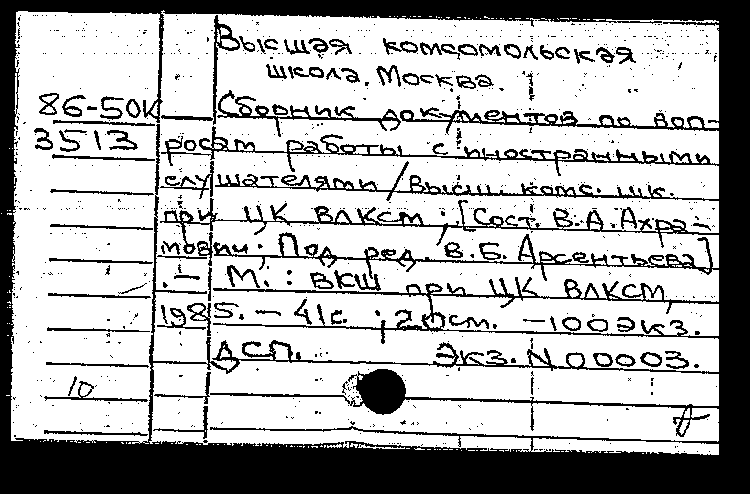 Высшая комсомольская
школа. Москва.
86-50к Сборник документов по воп-
3513 росам работы с иностранными
слушателями / Высш. комс. шк.
при ЦК ВЛКСМ ; [Сост. В. А. Ахра-
мович; Под ред. В. Б. Арсентьева]
. — М. : ВКШ при ЦК ВЛКСМ,
1985. — 41с. ; 20см. — 100экз.
ДСП. Экз. N 00003.
10